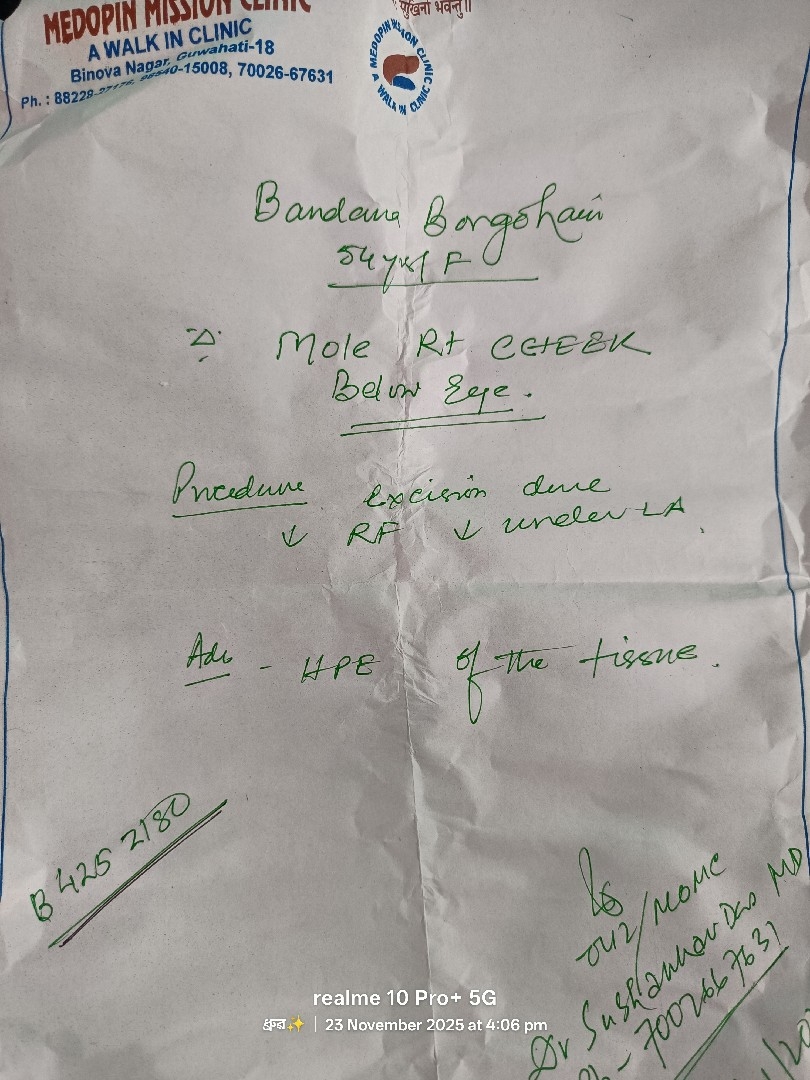 MEDOPIN MISSION CLINIC
A WALK IN CLINIC
Binova Nagar, Guwahati-18
Ph. : 88229- -15008, 70026-67631
सुखिनो भवन्तु॥
MEDOPIN MISSION CLINIC
A WALK IN CLINIC
Bandana Borgohain
54 yrs/ F
Δ: Mole Rt CHEEK
Below Eye.
Procedure excision done
↓ RF ↓ under LA
Adv - HPE of the tissue.
B 425 2180
Dr Sushankar Das MD
7002667631
realme 10 Pro+ 5G
ध्रुव✨ | 23 November 2025 at 4:06 pm